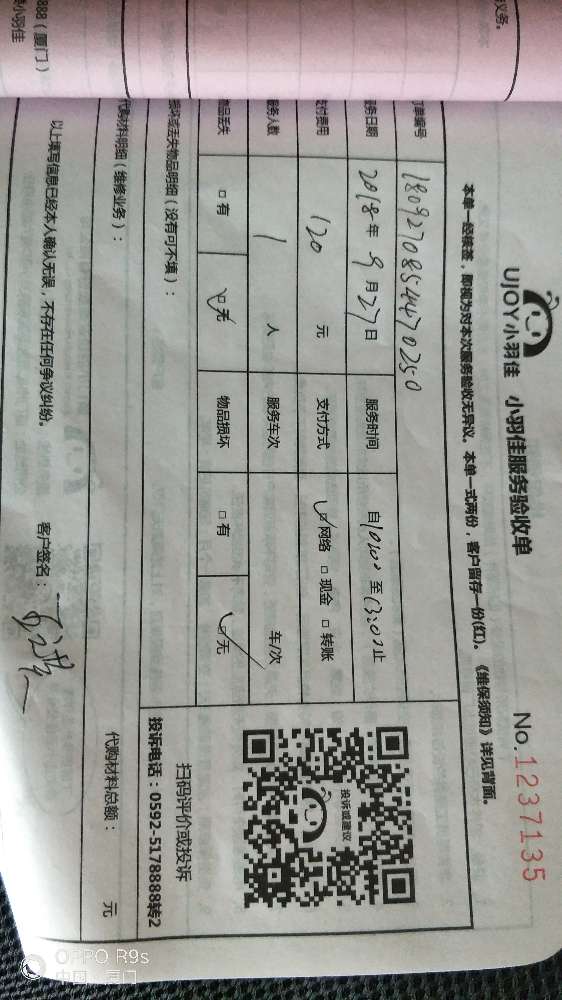 UJOY小羽佳 小羽佳服务验收单
No.1237135
本单一经核签，即视为对本次服务验收无异议。本单一式两份，客户留存一份(红)。《维保须知》详见背面。
订单编号 18092708544470250
服务日期 2018年9月27日 服务时间 自10:00至13:00止
支付费用 120 元 支付方式 网络 现金 转账
服务人数 1 人 服务车次 车/次
物品丢失 有 无 物品损坏 有 无
损坏或丢失物品明细（没有可不填）：
投诉或建议
扫码评价或投诉
投诉电话：0592-5178888转2
代购材料明细（维修业务）：
代购材料总额： 元
以上填写信息已经本人确认无误，不存在任何争议纠纷。
客户签名：
888（厦门）
小羽佳
议务。
OPPO R9s
中国·厦门